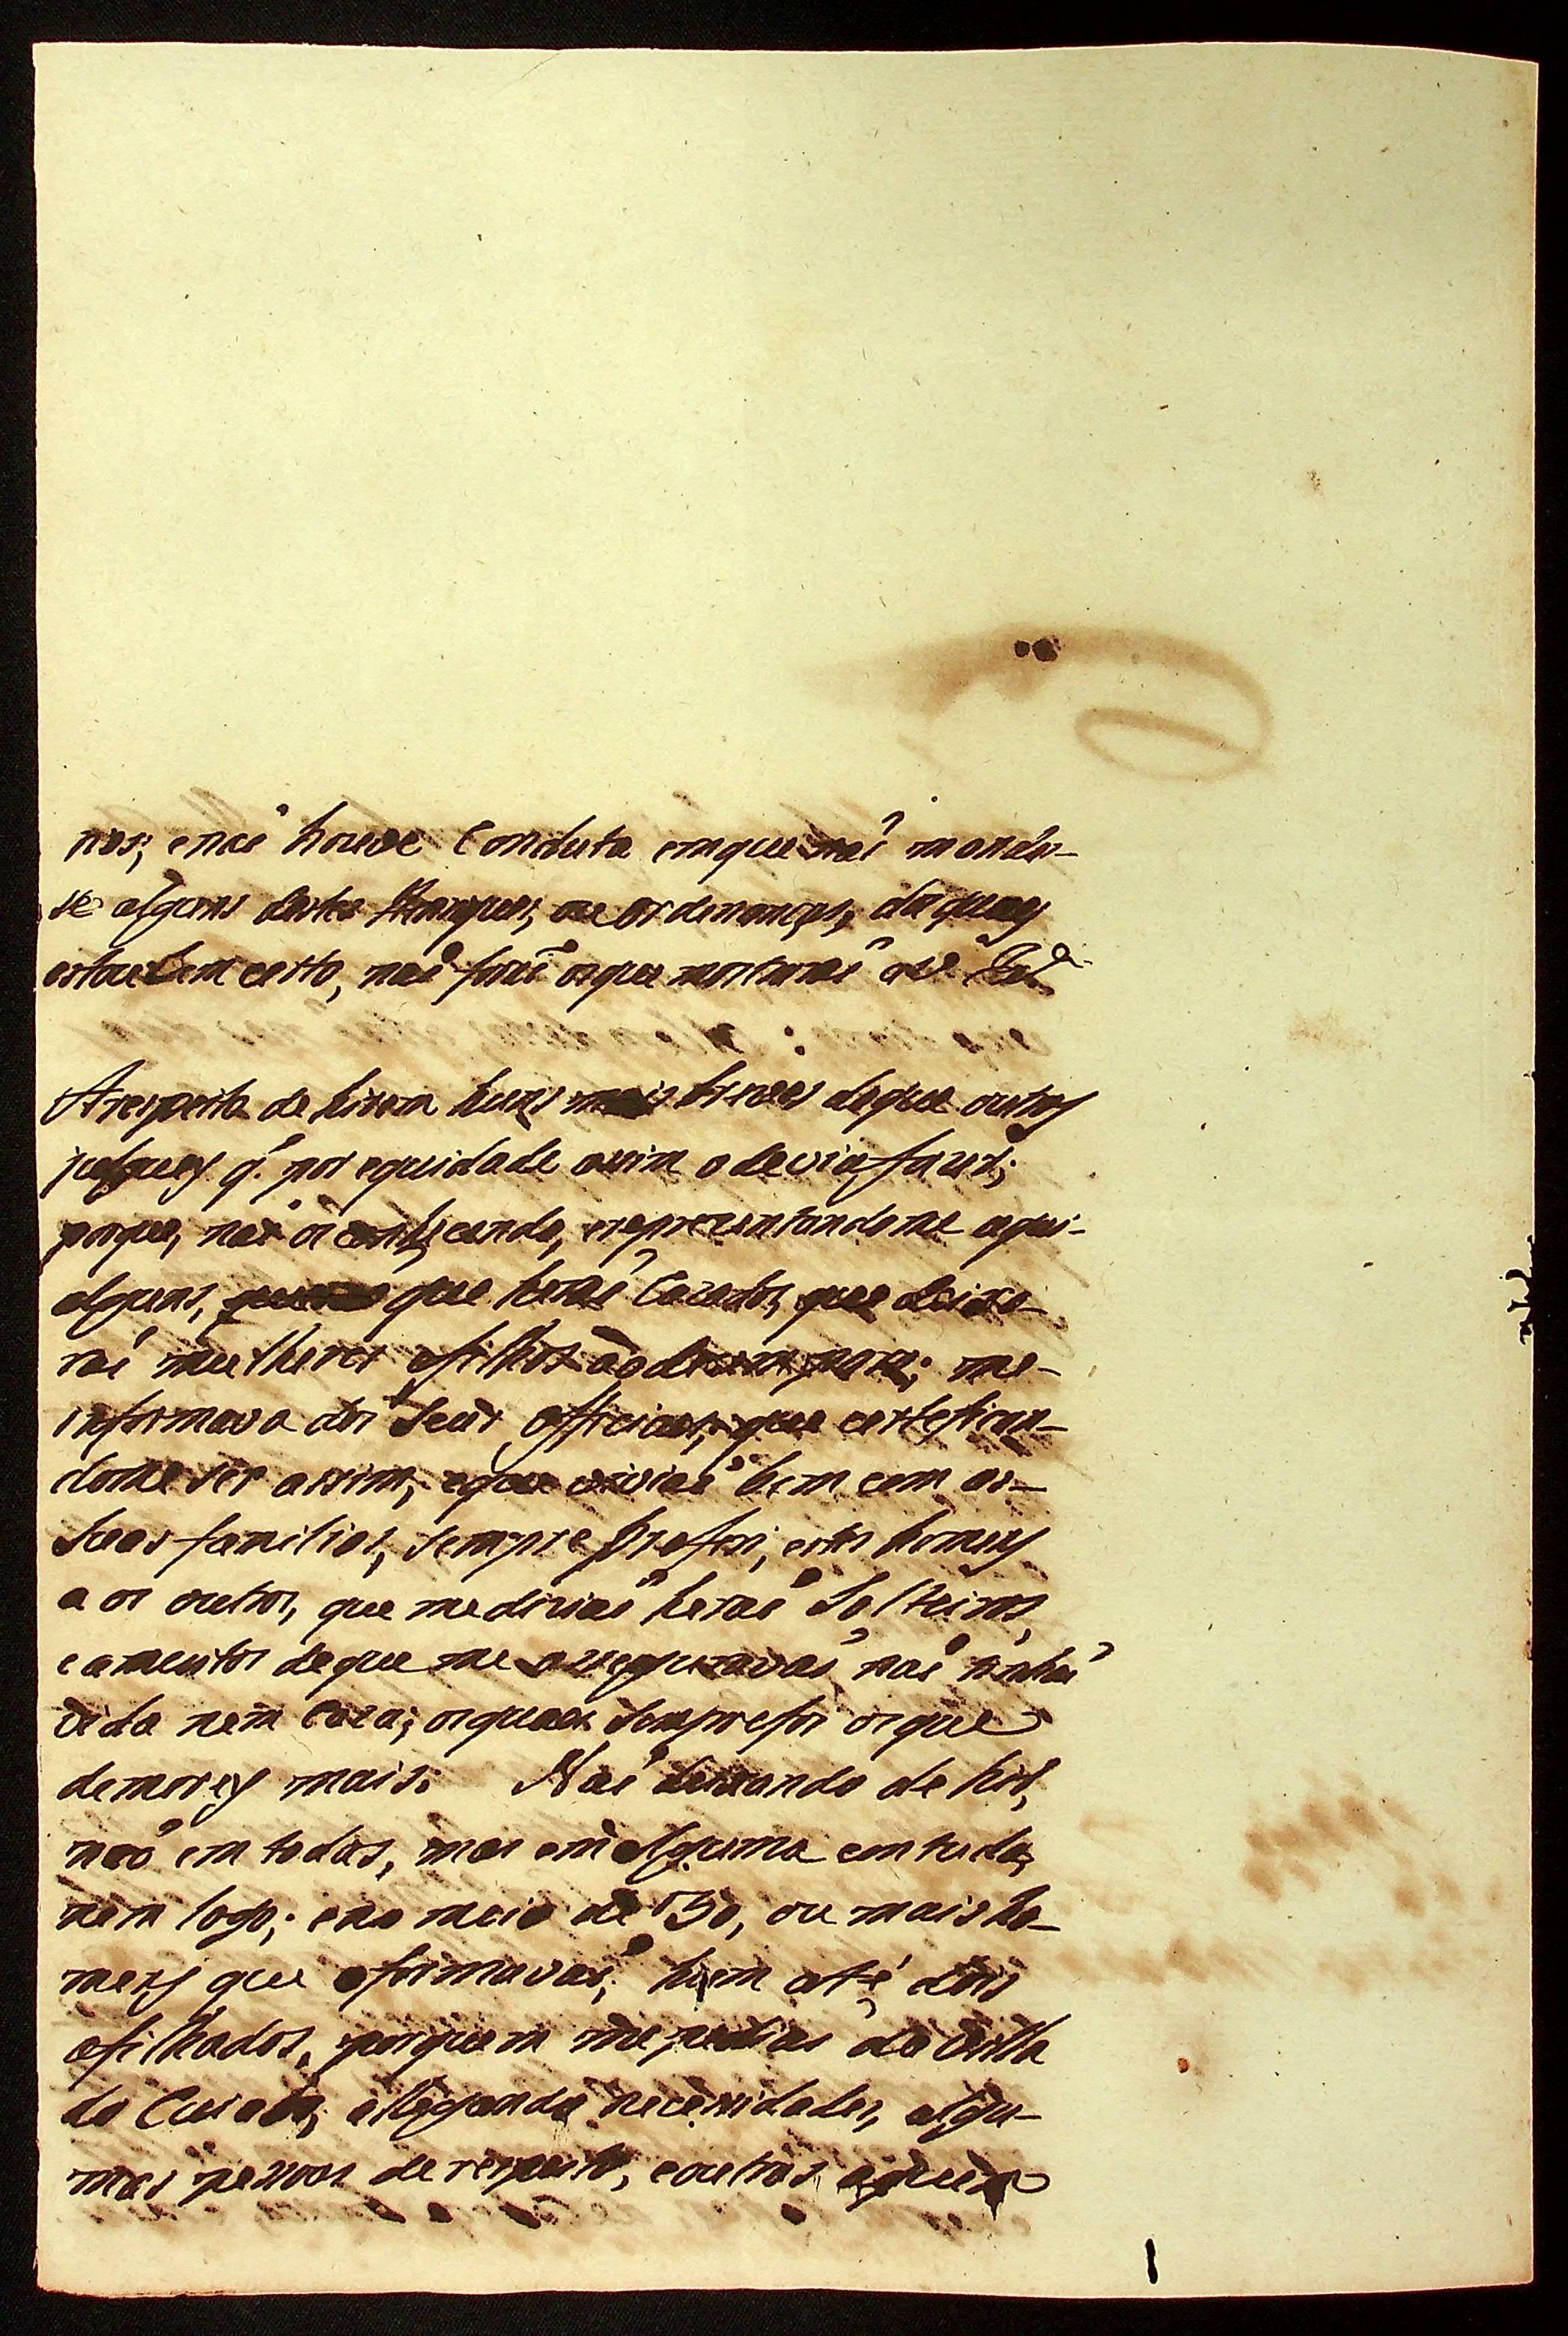 nos; e naõ houve Conduta em que naõ mandas-
se alguns destes Henriques, ou ordenanças, da quaes
estou bem certo, naõ foraõ os que montaraõ a V. Exa.
A respeito de hirem huns mais vezes de que outros
julguey q. por equidade assim o devia fazer;
porque, naõ os conhecendo, e reprezentandome aqui-
alguns, que heraõ Cazados, que deixa-
raõ mulheres e filhos ao dezemparo; me-
informava dos Seus officiaes, que certefican-
dome ser assim, e que viviaõ bem com as-
Suas familias, sempre preferi, estes homens
a os outros, que me diziaõ heraõ Solteiros,
e a muitos de que me asseguravaõ, naõ tinhaõ
vida nem Caza; os quaes sempre foi os que
demorey mais. Naõ deixando de hir,
naõ em todas, mas em alguma conduta,
nem logo; e no meio de 50, ou mais ho-
mens que a formavaõ; hum até dois
afilhados, por quem me pediaõ da Villa
do Cuiabá, allegando necessidades, algu-
mas pessoas de respeito, e outras a quem